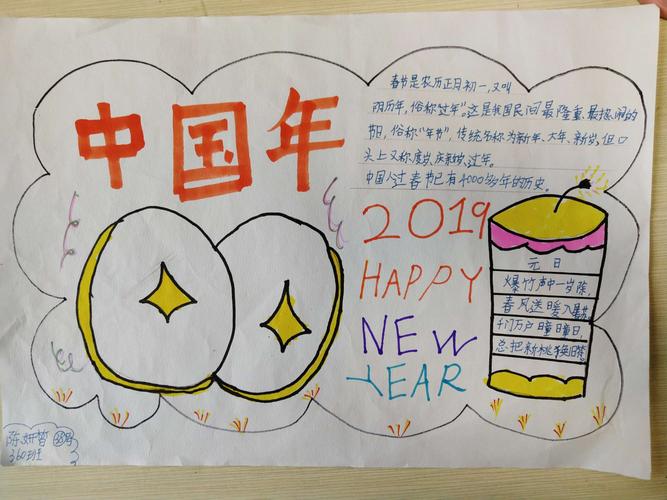 中国年
春节是农历正月初一,又叫
阴历年,俗称“过年”。这是我国民间最隆重、最热闹的
节日,俗称“年节”,传统名称为新年、大年、新岁,但口
头上又称度岁、庆新岁、过年。
中国人过春节已有4000多年的历史。
2019
HAPPY
NEW
YEAR
元日
爆竹声中一岁除,
春风送暖入屠苏。
千门万户曈曈日,
总把新桃换旧符
陈妍
360班